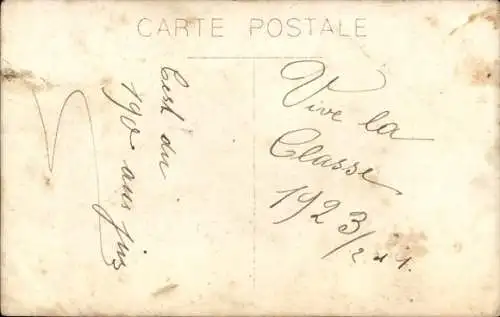 CARTE POSTALE
C'est du
190 au jus
Vive la
Classe
1923/2 et 1.